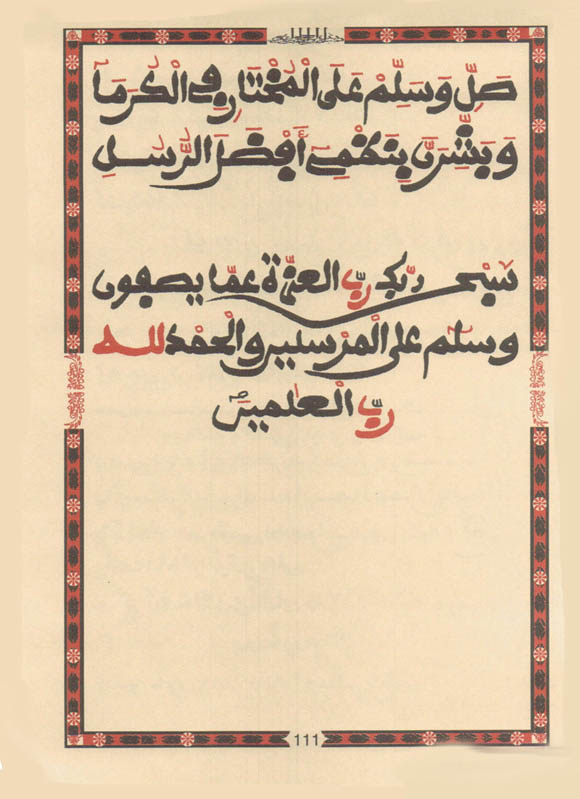 صَلِّ وَسَلِّمْ عَلَى الْمُخْتَارِ فِى الْكُرَمَآ
وَبَشِّرَنَّ بِنَظْمِى أَفْضَلَ الرُّسُلِ
سبحن ربّك ربّ العزّة عمّا يصفون
وسلم على المرسلين والحمد لله
ربّ العلمين
111